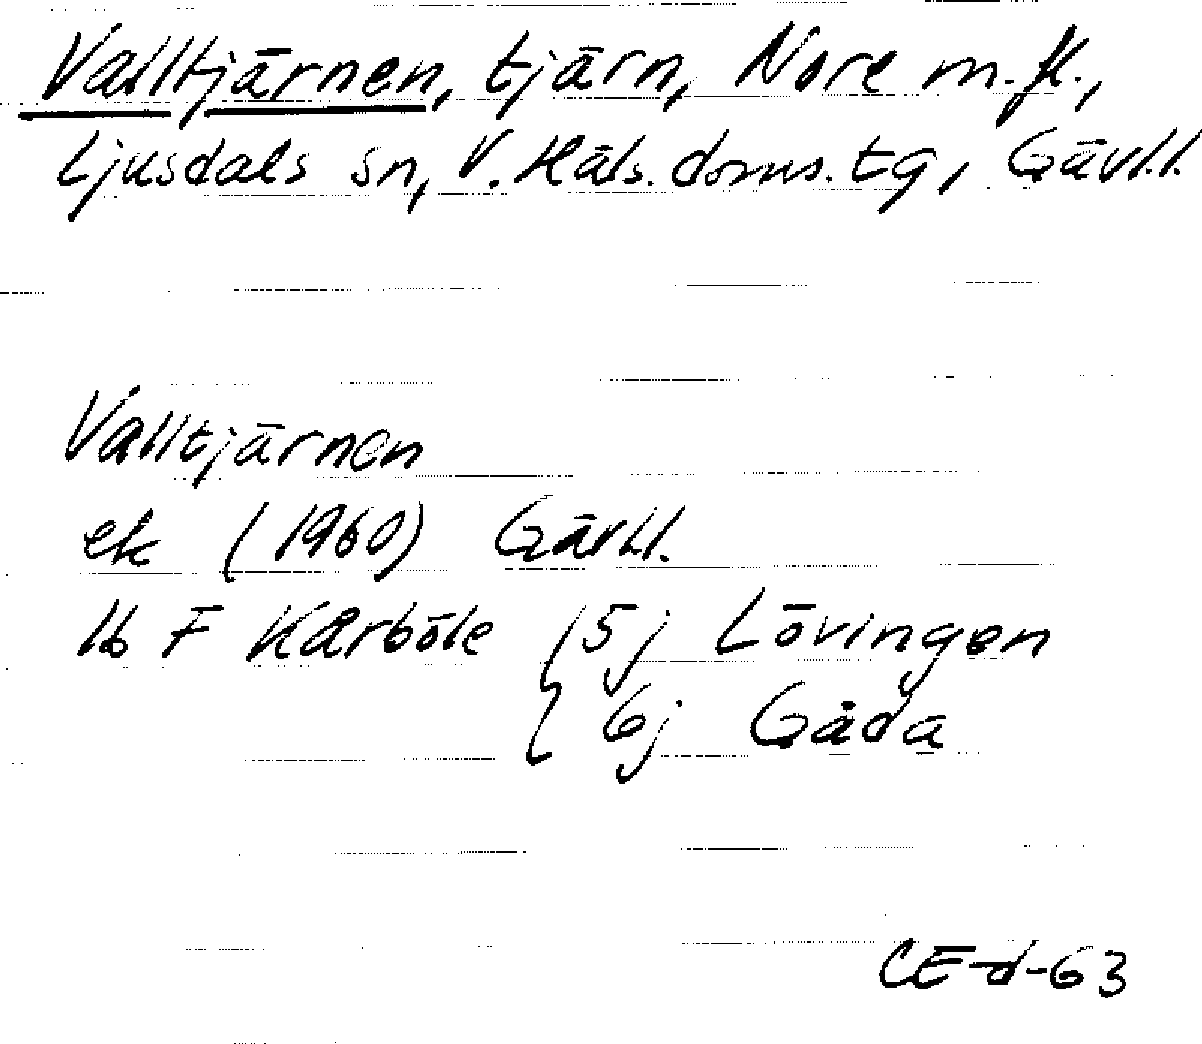 Valltjärnen, tjärn, Nore m.fl.,
Ljusdals sn, V. Häls. doms. tg, Gävl.l.
Valltjärnen
ek (1960) Gävl.l.
16 F Kårböle { 5j Lövingen
6j Gåda
CE-d-63